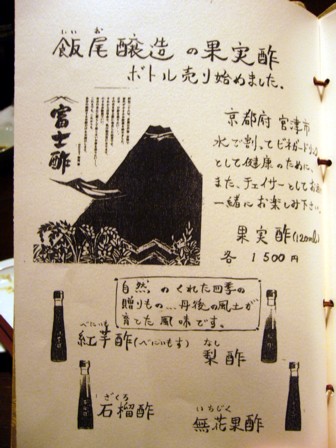 いいお
飯尾醸造の果実酢
ボトル売り始めました。
富士酢
京都府 宮津市
水で割ってビネガードリンク
として健康のために、
また、チェイサーとしてお酒と
一緒にお楽しみ下さい。
果実酢(120ml)
各 1500円
自然のくれた四季の
贈りもの…丹後の風土が
育てた風味です。
べにいも
紅芋酢(べにいもす)
なし
梨酢
ざくろ
石榴酢
いちじく
無花果酢